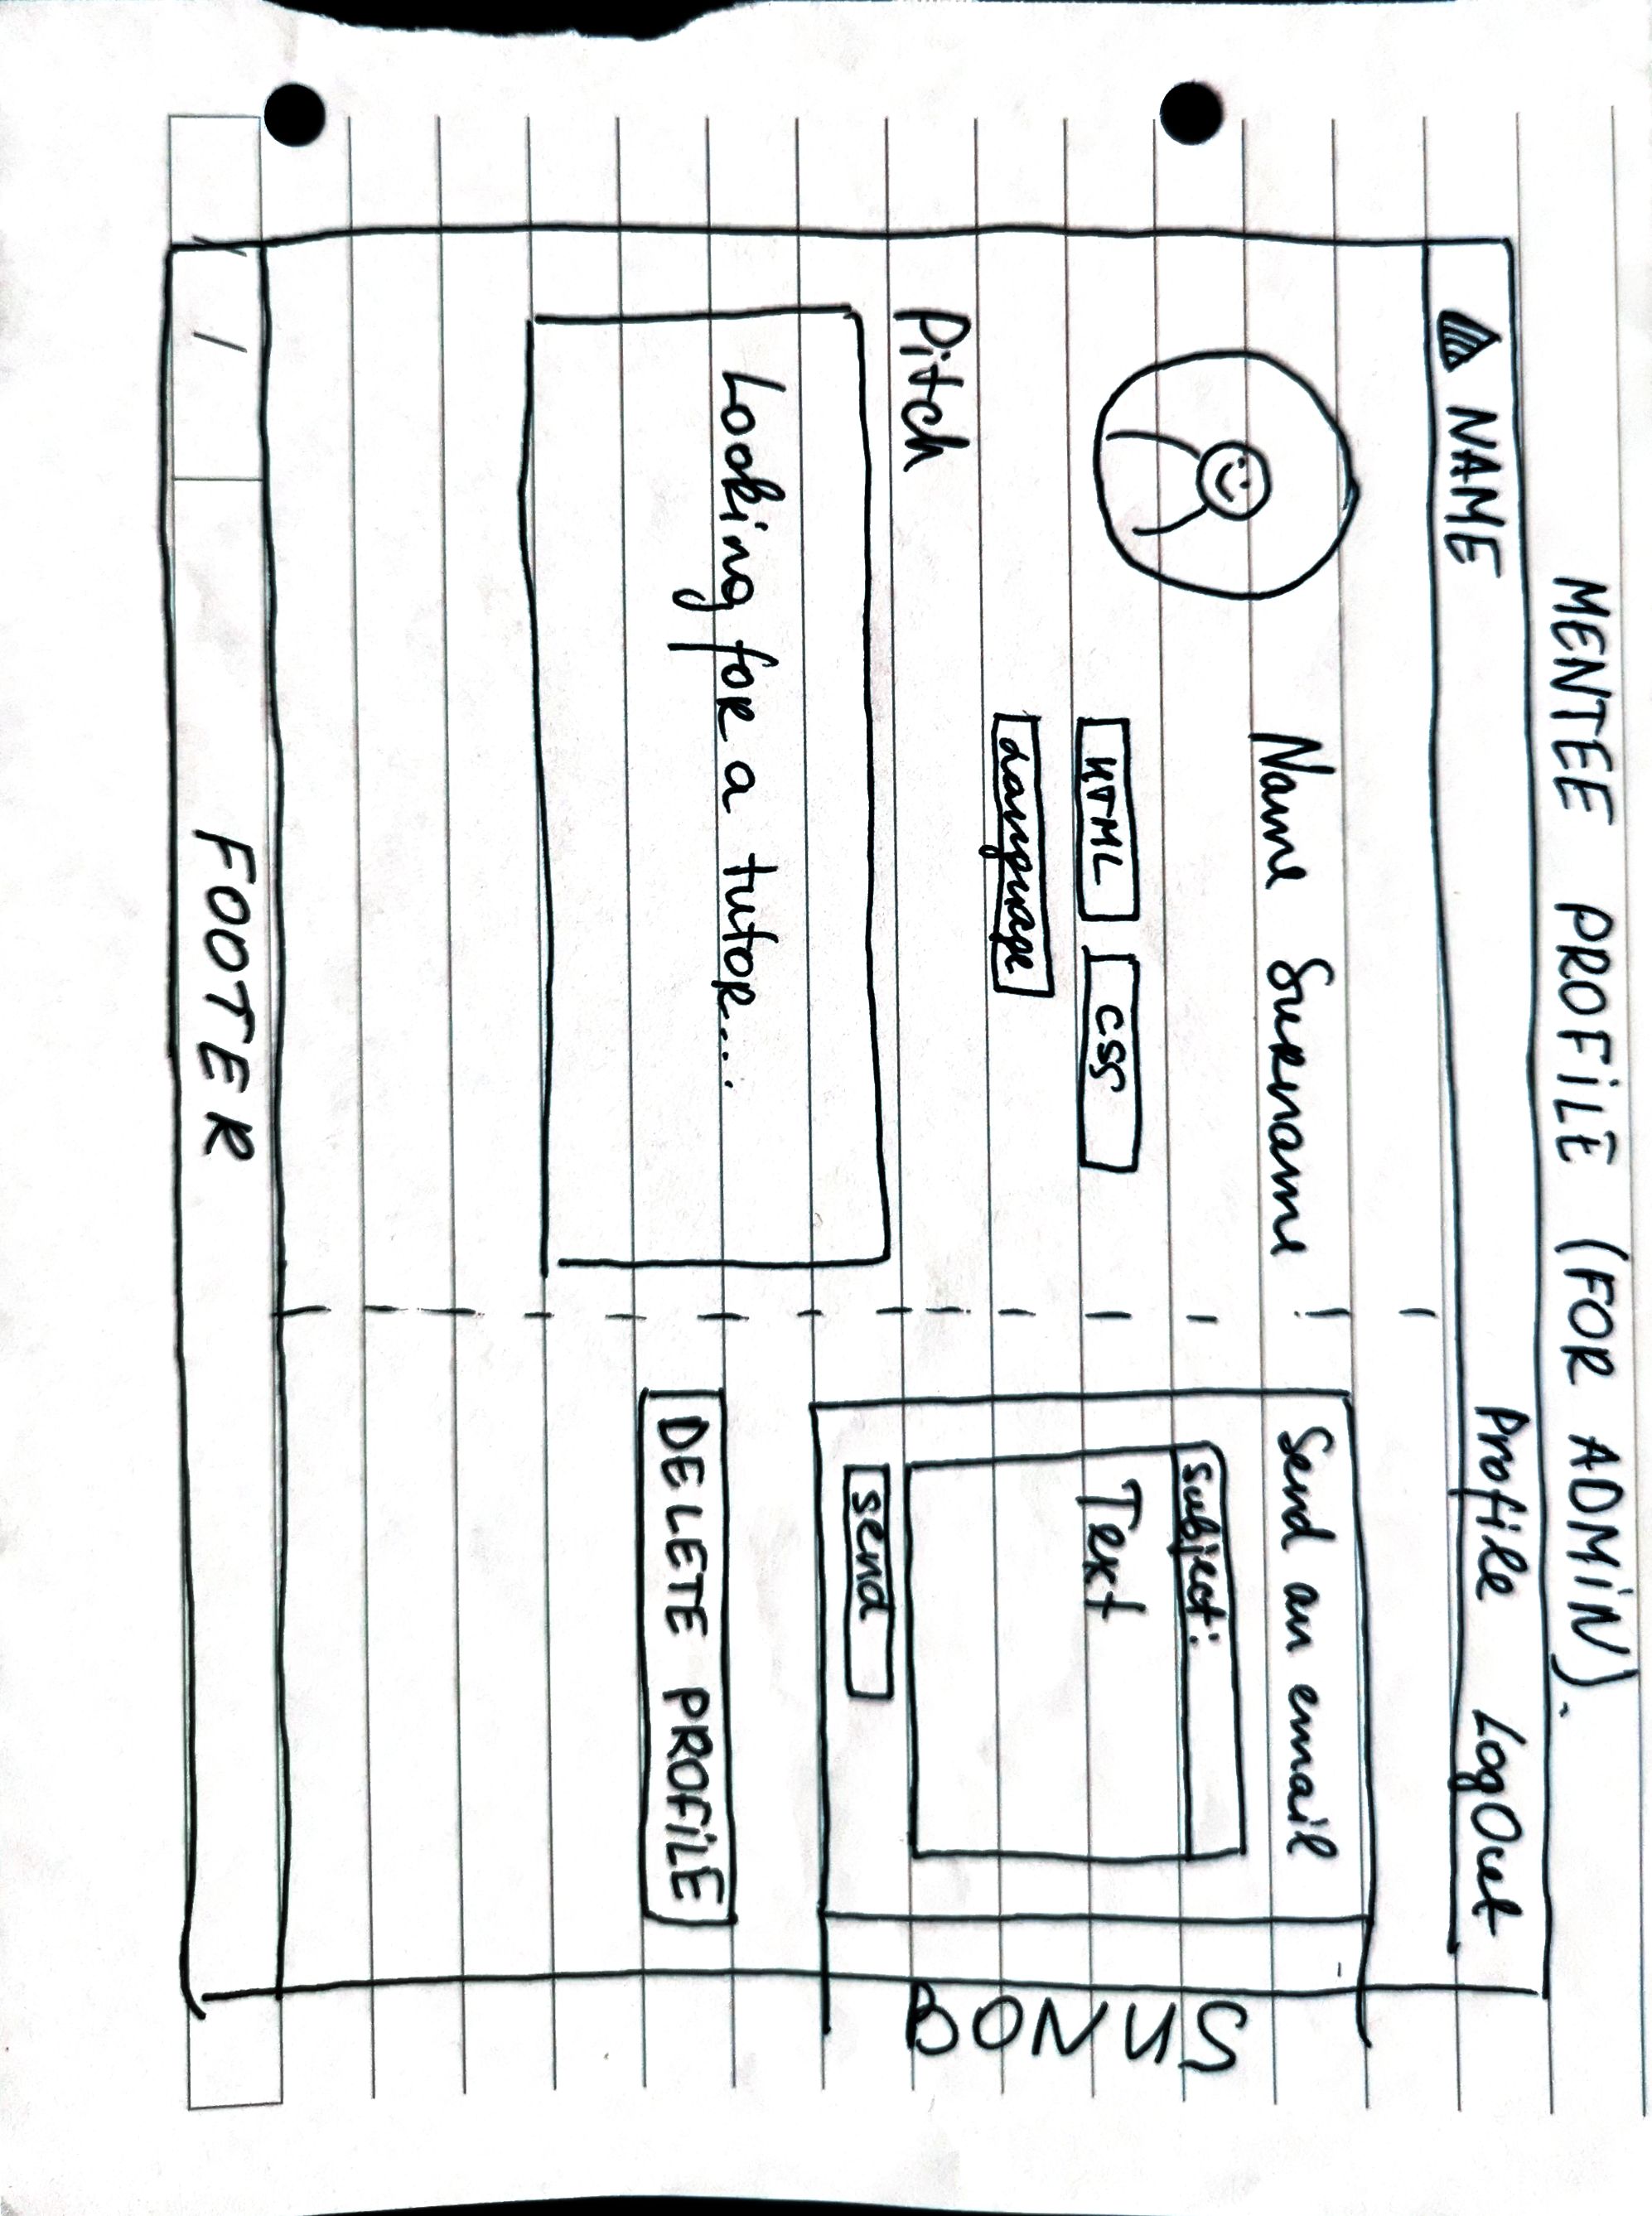 MENTEE PROFILE (FOR ADMIN).
NAME Profile LogOut
Name Surname
HTML CSS
Language
Pitch
Looking for a tutor...
Send an email
Subject:
Text
Send
DELETE PROFILE
BONUS
FOOTER